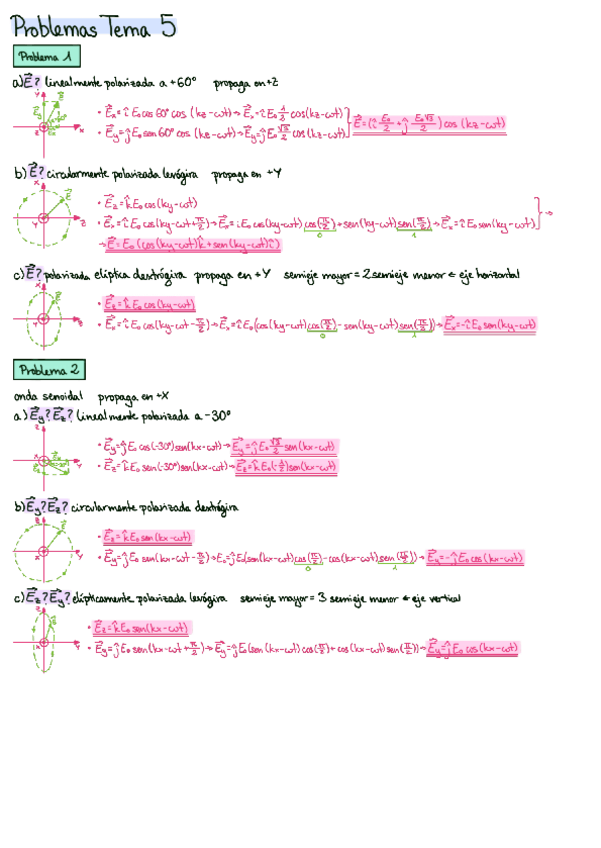 Problemas Tema 5
Problema 1
a) E⃗? linealmente polarizada a +60° propaga en +Z
• E⃗x = î E₀ cos 60° cos (kz-ωt) → E⃗x = î E₀ 1/2 cos(kz-ωt)
• E⃗y = ĵ E₀ sen 60° cos (kz-ωt) → E⃗y = ĵ E₀ √3/2 cos(kz-ωt)
E⃗ = (î E₀/2 + ĵ E₀√3/2) cos (kz-ωt)
b) E⃗? circularmente polarizada levógira propaga en +Y
• E⃗z = k̂ E₀ cos(ky-ωt)
• E⃗x = î E₀ cos(ky-ωt+π/2) → E⃗x = î E₀ cos(ky-ωt) cos(π/2) + sen(ky-ωt) sen(π/2) → E⃗x = î E₀ sen(ky-ωt) →
0 1
→ E⃗ = E₀ (cos(ky-ωt) k̂ + sen(ky-ωt) î)
c) E⃗? polarizada elíptica dextrógira propaga en +Y semieje mayor = 2 semieje menor ← eje horizontal
• E⃗z = k̂ E₀ cos(ky-ωt)
• E⃗x = î E₀ cos(ky-ωt-π/2) → E⃗x = î E₀ (cos(ky-ωt) cos(π/2) - sen(ky-ωt) sen(π/2)) → E⃗x = -î E₀ sen(ky-ωt)
0 1
Problema 2
onda senoidal propaga en +X
a) E⃗y? E⃗z? linealmente polarizada a -30°
• E⃗y = ĵ E₀ cos(-30°) sen(kx-ωt) → E⃗y = ĵ E₀ √3/2 sen(kx-ωt)
• E⃗z = k̂ E₀ sen(-30°) sen(kx-ωt) → E⃗z = k̂ E₀ (-1/2) sen(kx-ωt)
b) E⃗y? E⃗z? circularmente polarizada dextrógira
• E⃗z = k̂ E₀ sen(kx-ωt)
• E⃗y = ĵ E₀ sen(kx-ωt-π/2) → E₀ = ĵ E₀ (sen(kx-ωt) cos(π/2) - cos(kx-ωt) sen(π/2)) → E⃗y = -ĵ E₀ cos(kx-ωt)
0 1
c) E⃗z? E⃗y? elípticamente polarizada levógira semieje mayor = 3 semieje menor ← eje vertical
• E⃗z = k̂ E₀ sen(kx-ωt)
• E⃗y = ĵ E₀ sen(kx-ωt+π/2) → E⃗y = ĵ E₀ (sen(kx-ωt) cos(π/2) + cos(kx-ωt) sen(π/2)) → E⃗y = ĵ E₀ cos(kx-ωt)